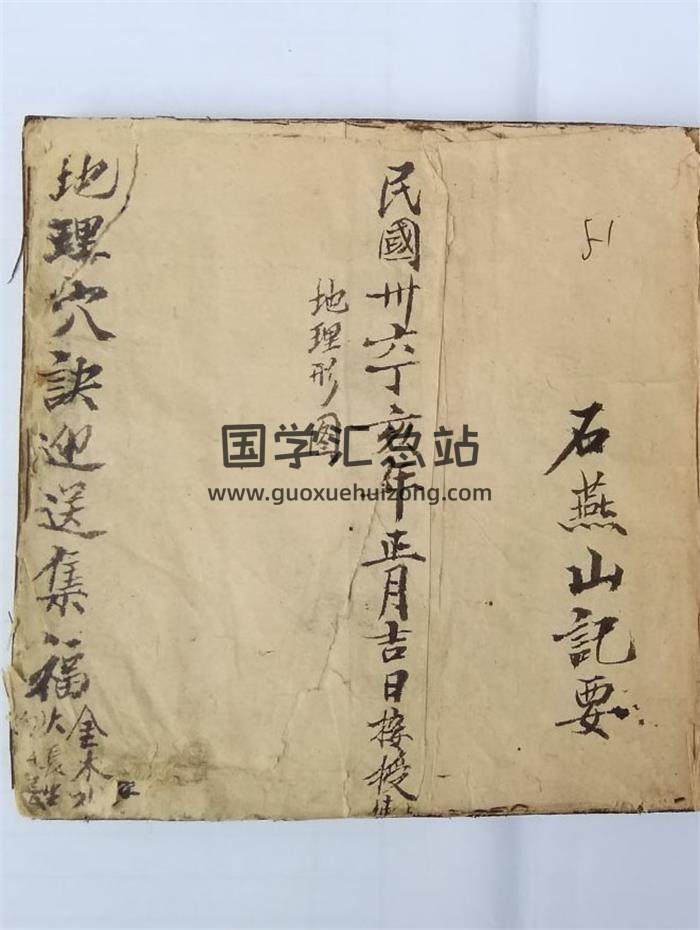 51
石燕山記要
民國卅六丁亥年正月吉日接授
地理形图
地理穴訣迎送集福
金木
国学汇总站
www.guoxuehuizong.com